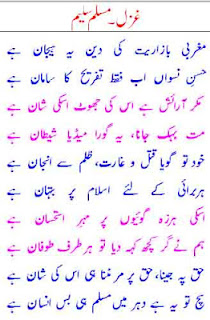 غزل۔ مسلم سلیم
مغربی بازاریت کی دین یہ ہیجان ہے
حسنِ نسواں اب فقط تفریح کا سامان ہے
مکر آرائش ہے اس کی جھوٹ اسکی شان ہے
مت بہک جانا، یہ گورا میڈیا شیطان ہے
خود تو گویا قتل و غارت، ظلم سے انجان ہے
ہر برائی کے لئے اسلام پر بہتان ہے
اسکی ہرزہ گوئیوں پر مہرِ استحسان ہے
ہم نے گر کچھ کہہ دیا تو ہر طرف طوفان ہے
حق پہ جینا، حق پر مرمٹنا ہی اس کی شان ہے
سچ تو یہ ہے دہر میں مسلم ہی بس انسان ہے